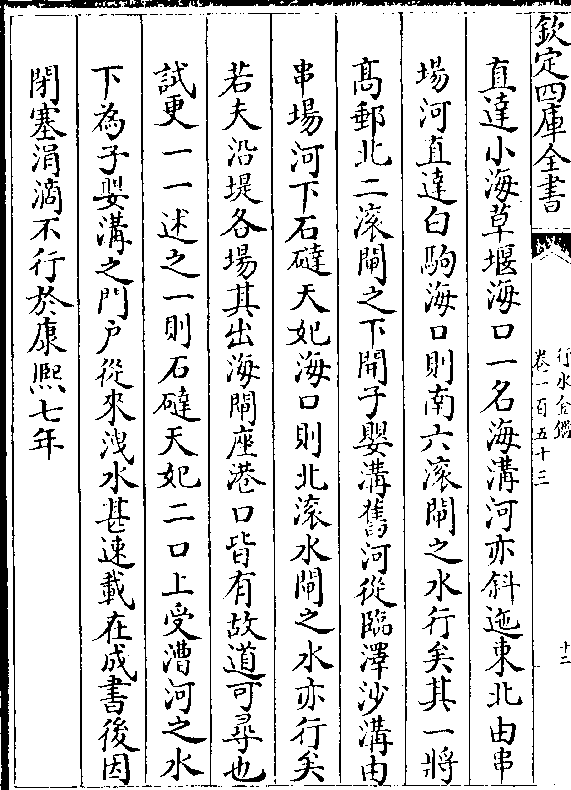 欽定四庫全書
行水金鑑
卷一百五十三
十二
直達小海草堰海口一名海溝河亦斜迤東北由串
場河直達白駒海口則南六滚閘之水行矣其一將
髙郵北二滚閘之下開子嬰溝舊河從臨澤沙溝由
串場河下石䃮天妃海口則北滚水閘之水亦行矣
若夫沿堤各場其出海閘座港口皆有故道可尋也
試更一一述之一則石䃮天妃二口上受漕河之水
下為子嬰溝之門户從來洩水甚速載在成書後因
閉塞涓滴不行於康熙七年